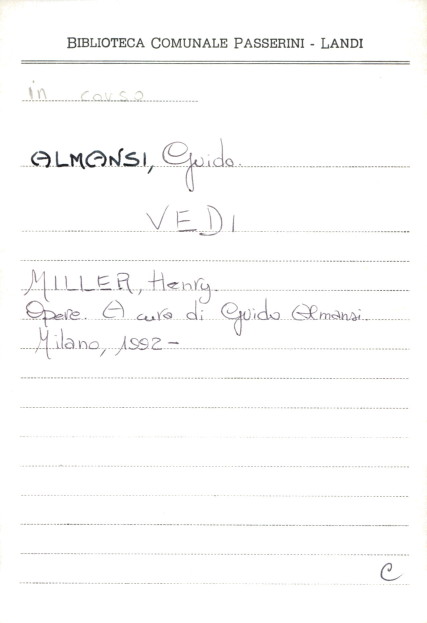 BIBLIOTECA COMUNALE PASSERINI - LANDI
in corso
ALMANSI, Guido.
VEDI
MILLER, Henry.
Opere. A cura di Guido Almansi.
Milano, 1992 -
C